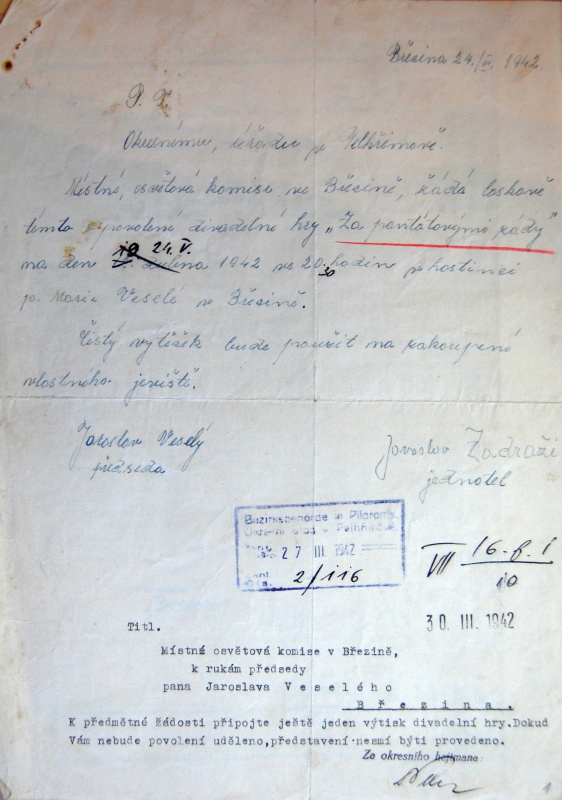 Březina 24./III. 1942
P. T.
Okresnímu úřadu v Pelhřimově.
Místní osvětová komise ve Březině, žádá laskavě
tímto o povolení divadelní hry „Za pantátovými zády"
na den 10 24.V. dubna 1942 ve 20.30 hodin v hostinci
p. Marie Veselé v Březině.
Čistý výtěžek bude použit na zakoupení
vlastního jeviště.
Jaroslav Veselý
předseda
Jaroslav Zadraži
jednatel
Bezirksbehörde in Pilgrams
Okresní úřad v Pelhřimově
27 III. 1942
2/116
VII 16-8-1
10
30. III. 1942
Titl.
Místná osvětová komise v Březině,
k rukám předsedy
pana Jaroslava Veselého
Březina.
K předmětné žádosti připojte ještě jeden výtisk divadelní hry.Dokud
Vám nebude povolení uděleno,představení nesmí býti provedeno.
Za okresního hejtmana:
1